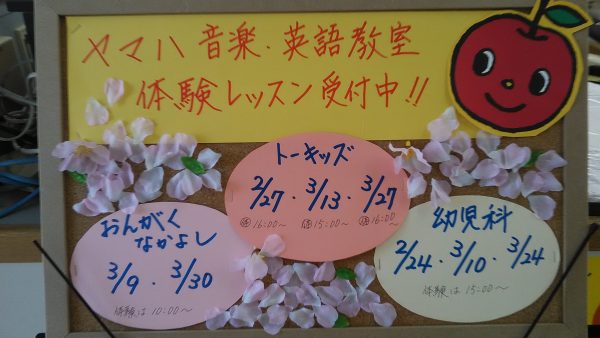 ヤマハ 音楽・英語教室
体験レッスン受付中!!
トーキッズ
2/27・3/13・3/27
体16:00～ 体15:00～ 体16:00～
おんがく
なかよし
3/9・3/30
体験は10:00～
幼児科
2/24・3/10・3/24
体験は15:00～